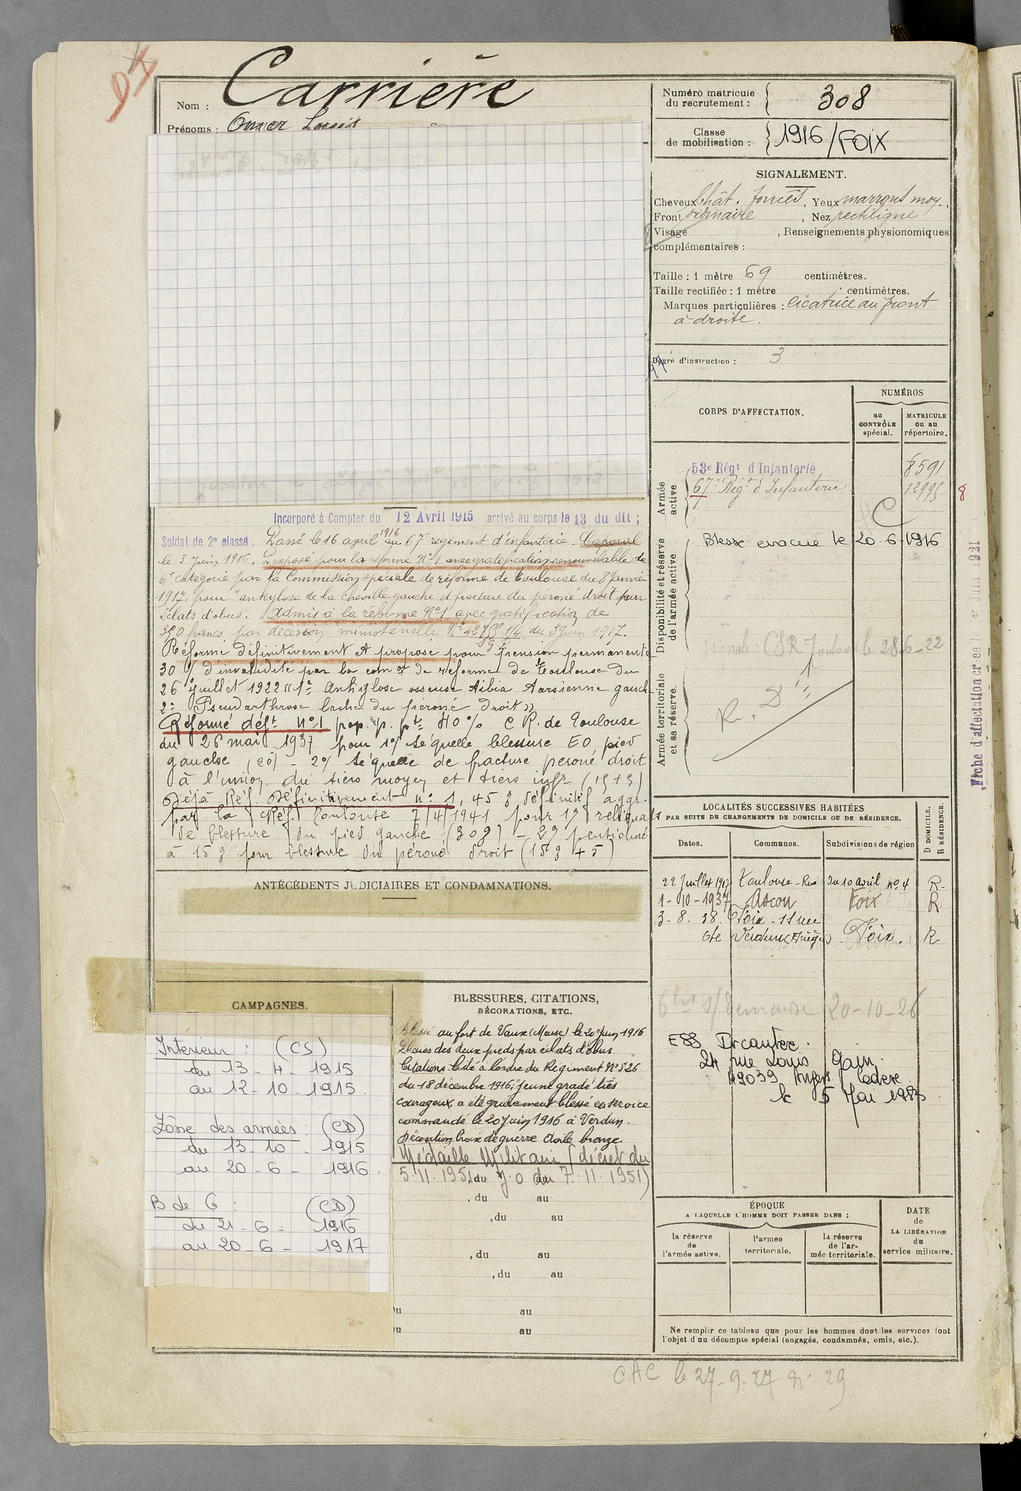 Nom : Carrière
Prénoms : Omer
Numéro matricule
du recrutement : 308
Classe
de mobilisation : 1916/FOIX
SIGNALEMENT.
Cheveux chât. foncés, Yeux marrons moy.,
Front ordinaire, Nez rectiligne
Visage , Renseignements physionomiques
complémentaires :
Taille : 1 mètre 69 centimètres.
Taille rectifiée : 1 mètre centimètres.
Marques particulières : cicatrice au front
à droite.
Degré d'instruction : 3
CORPS D'AFFECTATION.
NUMÉROS
au
CONTRÔLE
spécial.
MATRICULE
ou au
répertoire.
Armée
active
53e Régt d'Infanterie 8591
67e Régt d'Infanterie
C
Disponibilité et réserve
de l'armée active.
Blessé évacué le 20-6-1916
Toulouse le 28-6-22
Armée territoriale
et sa réserve.
R. D. 1
Fiche d'affectation créée le 1931
Incorporé à Compter du 12 Avril 1915 arrivé au corps le 13 du dit ;
Soldat de 2e classe. Passé le 16 avril 1916 au 67e régiment d'infanterie. Caporal
le 5 juin 1916. Proposé pour la réforme N°1 avec gratification renouvelable de
6e catégorie par la Commission spéciale de réforme de Toulouse du 8 Janvier
1917 pour "ankylose de la cheville gauche et fracture du péroné droit par
éclats d'obus. Admis à la réforme N°1 avec gratification de
francs par décision ministérielle du 3 Juin 1917.
Réformé définitivement et proposé pour pension permanente
30 % d'invalidité par la com on de réforme de Toulouse du
26 juillet 1922 "1° Ankylose osseuse tibia tarsienne gauche
2° Pseudarthrose lâche du péroné droit"
Réformé déft n°1 prop. p. pte 40 % C. R. de Toulouse
du 26 mai 1937 pour 1°/ séquelle blessure E O pied
gauche - 2°/ séquelle de fracture péroné droit
à l'union du tiers moyen et tiers infr
Déjà Réf. Définitivement n° 1, 45 % définitif aggr.
par la Réf. Toulouse 7/4/1941 pour 1°) reliquats
de blessure du pied gauche (30%) - 2°) pensionné
à 15 % pour blessure du péroné droit (15% 45)
ANTÉCÉDENTS JUDICIAIRES ET CONDAMNATIONS.
LOCALITÉS SUCCESSIVES HABITÉES
PAR SUITE DE CHANGEMENTS DE DOMICILE OU DE RÉSIDENCE.
D DOMICILE.
R RÉSIDENCE.
Dates. Communes. Subdivisions de région
22 Juillet Toulouse - Rue du 10 avril n° 4 R
1-10-1937 Ascou Foix R
3-8.38. Foix - 11 rue
de Verdun (Ariège) Foix. R
20-10-26
24 rue Louis Gain
49039 Angers Cedex
le 5 Mai 1983
CAMPAGNES.
Intérieur : (CS)
du 13-4-1915
au 12-10-1915
Zône des armées : (CD)
du 13-10-1915
au 20-6-1916.
B de G : (CD)
du 21-6-1916
au 20-6-1917
BLESSURES, CITATIONS,
DÉCORATIONS, ETC.
Blessé au fort de Vaux (Meuse) le 20 Juin 1916
Plaies des deux pieds par éclats d'obus.
Citations. Cité à l'ordre du Régiment N° 526
du 18 décembre 1916 ; jeune gradé très
courageux, a été grièvement blessé en service
commandé le 20 Juin 1916 à Verdun.
Décoration Croix de guerre étoile bronze.
Médaille Militaire (décret du
5.11.1951 du J.O du 7.11.1951)
, du au
, du au
, du au
, du au
du au
du au
ÉPOQUE
A LAQUELLE L'HOMME DOIT PASSER DANS :
la réserve
de
l'armée active.
l'armée
territoriale.
la réserve
de l'ar-
mée territoriale.
DATE
de
LA LIBÉRATION
du
service militaire.
Ne remplir ce tableau que pour les hommes dont les services font
l'objet d'un décompte spécial (engagés, condamnés, omis, etc.).
CAC le 27-9-27 n° 29